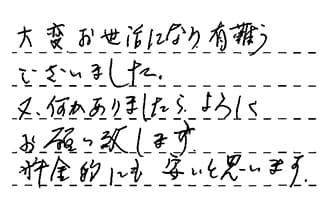 大変お世話になり有難う
ございました。
又、何かありましたら、よろしく
お願い致します
料金的にも安いと思います。